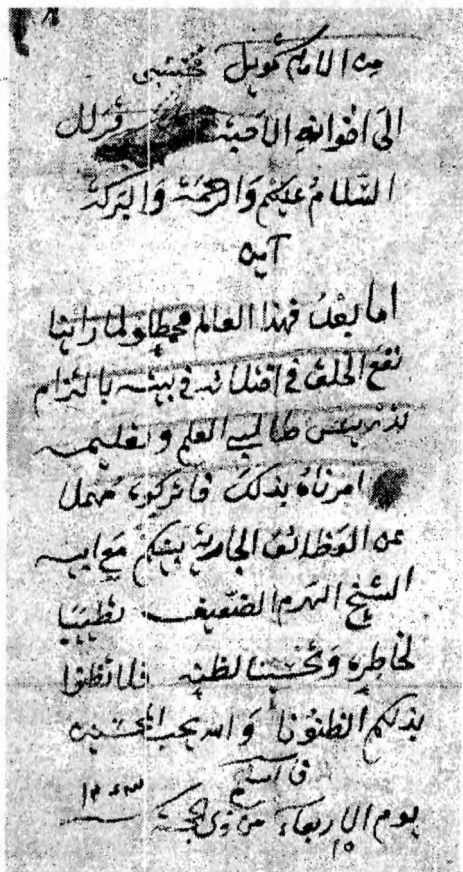 من الامام كويل محتسبى
الى اخوانه الاحبة قرلل
السلام عليكم والرحمة والبركة
آمين
اما بعد فهذا العالم محمطاو لما راينا
نفع الخلق فى اختلائه فى بيته بالتزام
تدريس طالبي العلم وتعليمه
امرناه بذلك فاتركوه مهمل
عن الوظائف الجارية بينكم مع ابيه
الشيخ الهرم الضعيف تطييبا
لخاطره وتحسينا لظنه فلا تظنوا
بذلكم الظنونا والله يحب المحسنين
فى
يوم الاربعاء من ذى الحجة ١٢٤٣